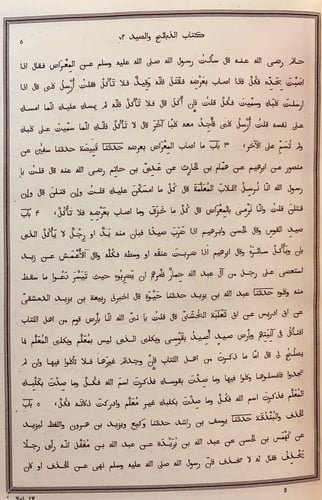 كتاب الذبائح والصيد ٧٢ ٥
حاتم رضى الله عنه قال سألت رسول الله صلى الله عليه وسلم عن المِعْراض فقال اذا
اصبتَ بحدِّه فكُلْ فاذا اصاب بعَرْضه فقتل فانّه وَقِيذٌ فلا تأكُلْ فقلتُ أُرْسِلُ كلبى قال اذا
ارسلتَ كلبك وسمّيتَ فكُلْ قلتُ فإن أَكَلَ قال فلا تأكُلْ فانّه لم يمسك عليك انّما امسك
على نفسه قلتُ أُرسل كلبى فأَجِدُ معه كلبًا آخَرَ قال لا تأكُلْ فانّك انّما سمّيتَ على كلبك
ولم تُسَمِّ على الآخَر، ٣ باب ما اصاب المعراض بعَرْضه حدثنا قَبِيصَة حدثنا سفيْن عن
منصور عن ابرهيم عن همّام بن الحارث عن عدىّ بن حاتم رضى الله عنه قال قلتُ يا
رسول الله انّا نُرسِلُ الكلابَ المُعَلَّمَة قال كُلْ ما امسَكْنَ عليك قلتُ وإن قتلنَ قال وإن
قتلنَ قلتُ وانّا نَرمى بالمِعْراض قال كُلْ ما خَزَقَ وما اصاب بعَرْضه فلا تأكُلْ، ٤ باب
صيد القوس وقال الحسن وابرهيم اذا ضرب صيدًا فبان منه يدٌ او رِجْلٌ لا يأكُل الذى
بان ويأكُل سائرَهُ وقال ابرهيم اذا ضربتَ عنقه او وسطه فكُلْه وقال الأَعْمَش عن زيد
استعصى على رجل من آل عبد الله حِمارٌ فأَمرهم ان يضربوه حيث تَيَسَّر دَعُوا ما سقط
منه وكُلوه حدثنا عبد الله بن يزيد حدثنا حَيْوَة قال اخبرنى ربيعة بن يزيد الدمشقى
عن ابى ادريس عن ابى ثَعْلَبَة الخُشَنِىّ قال قلتُ يا نبىّ الله انّا بأَرض قوم من اهل الكتاب
افنأكُل فى آنِيَتهم وبأرض صيدٍ أَصِيدُ بقَوْسى وبكلبى الذى ليس بمُعَلَّم وبكلبى المُعَلَّم فما
يصلُح لى قال امّا ما ذكرتَ من اهل الكتاب فإنْ وجدتم غيرَها فلا تأكُلوا فيها وان لم
تجدوا فاغسلوها وكُلوا فيها وما صِدْتَ بقوسك فذكرتَ اسم الله فكُلْ وما صِدْتَ بكلبك
المُعَلَّم فذكرتَ اسم الله فكُلْ وما صِدْتَ بكلبك غيرِ مُعَلَّم وادركتَ ذكاتَه فكُلْ، ٥ باب
الخَذْف والبُنْدُقة حدثنا يوسف بن راشد حدثنا وَكيع ويزيد بن هرون واللفظ ليزيد
عن كَهْمَس بن الحسن عن عبد الله بن بُرَيْدَة عن عبد الله بن مُغَفَّل انّه رأى رجلًا
يخذف فقال له لا تخذف فانّ رسول الله صلى الله عليه وسلم نهى عن الخذف او كان